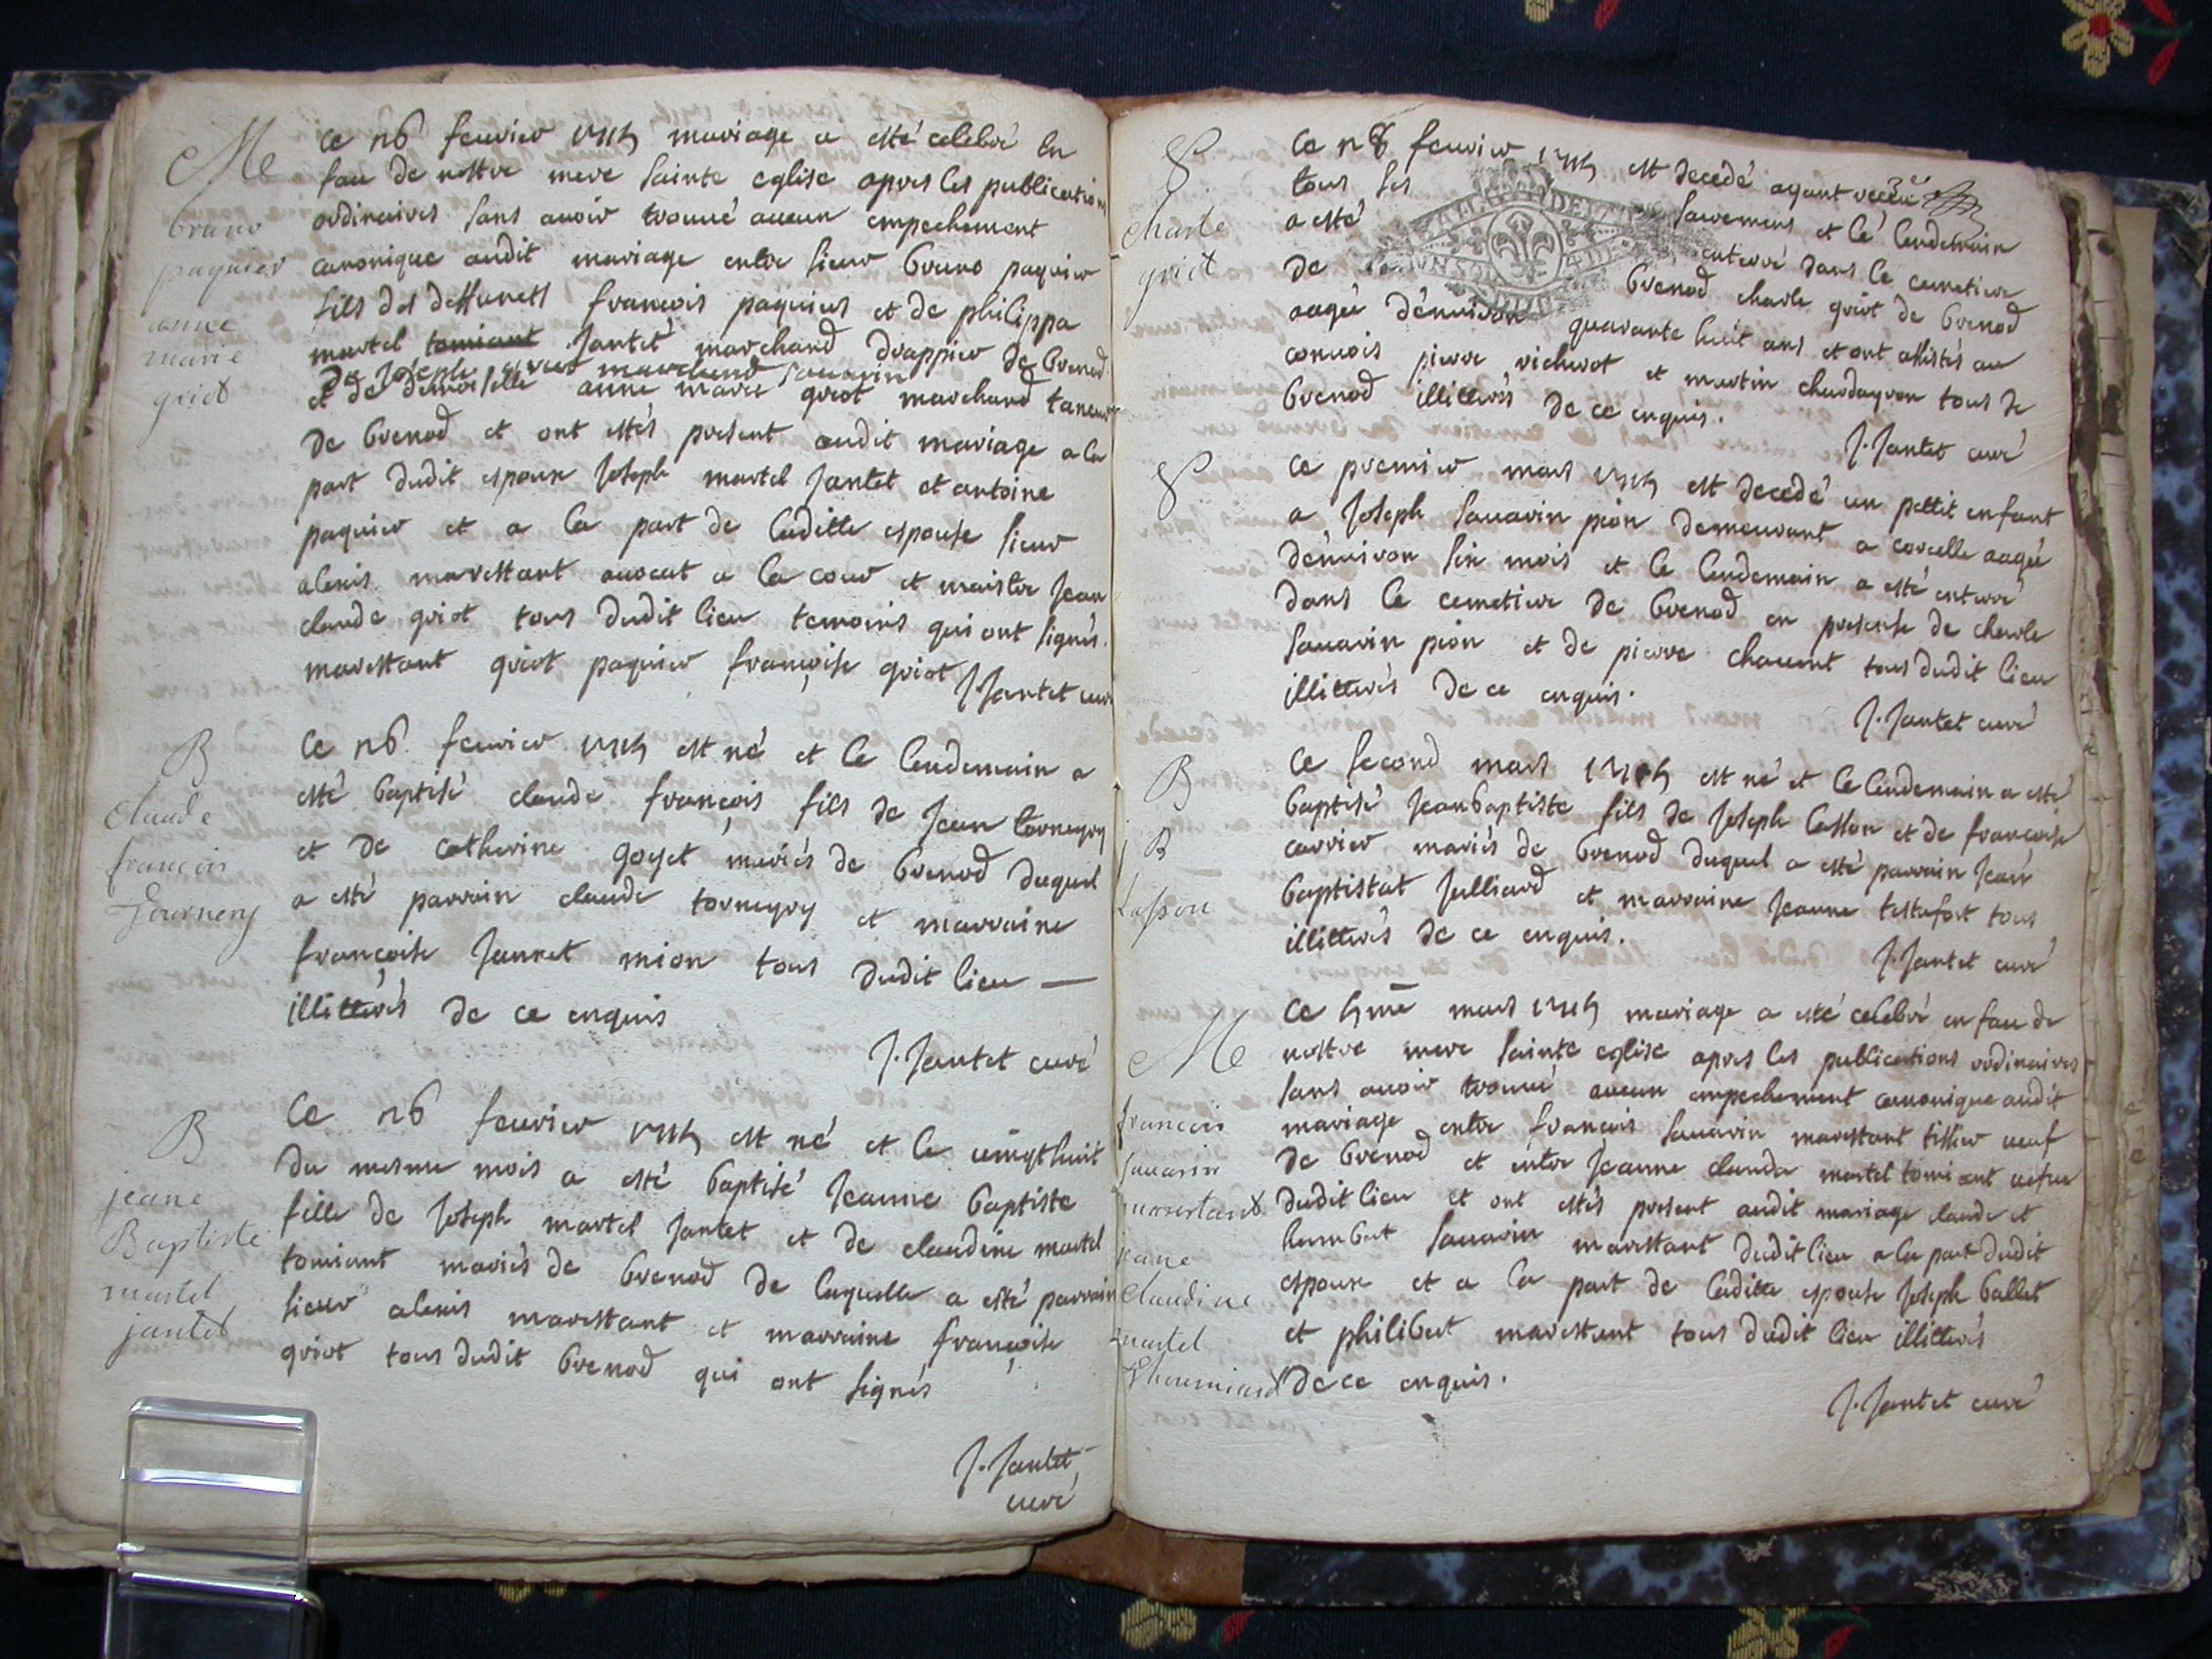 Me
bruno
paquier
anne
marie
griot
Ce 26 feuvier 1715 mariage a esté celebré En
fau de nostre mere sainte eglise apres les publications
ordinaires sans auoir trouué aucun empechement
canonique audit mariage entre sieur bruno paquier
fils des deffuncts francois paquier et de philippa
martel tomiant Jantet marchand drappier de brenod
de Joseph griot marchand sauarin
et de demoiselle anne marie griot marchand taneur
de brenod et ont estés present audit mariage a la
part dudit espoux Joseph martel Jantet et antoine
paquier et a la part de laditte espouse sieur
alexis marestant auocat a la cour et maistre Jean
claude griot tous dudit lieu temoins qui ont signés.
marestant griot paquier françoise griot J Jantet curé
B
claude
françois
Tournery
Ce 26 feuvier 1715 est né et le lendemain a
esté baptisé claude françois fils de Jean torneyry
et de catherine goyet mariés de brenod duquel
a esté parrain claude torneyry et marraine
françoise Jannet mion tous dudit lieu —
illitterés de ce enquis
J. Jantet curé
B
jeane
Baptiste
martel
jantet
Ce 26 feuvier 1715 est né et le uingthuit
du mesme mois a esté baptisé Jeanne baptiste
fille de Joseph martel Jantet et de claudine martel
tomiant mariés de brenod de laquelle a esté parrain
sieur alexis marestant et marraine françoise
griot tous dudit brenod qui ont signés
J. Jantet
curé
S
charle
griot
Ce 28 feuvier 1715 est decedé ayant receu
tous ses sacremens et le lendemain
a esté enterré dans le cemetiere
de brenod charle griot de brenod
aagé dénuiron quarante huit ans et ont assistés au
conuois pierre richerot et martin chardayron tous de
brenod illitterés de ce enquis.
J. Jantet curé
S
Ce premier mars 1715 est decedé un pettit enfant
a Joseph sauarin pion demeurant a corcelle aagé
dénuiron six mois et le lendemain a esté enterré
dans le cemetiere de brenod en presense de charle
sauarin pion et de pierre chaumt tous dudit lieu
illitterés de ce enquis.
J. Jantet curé
B
j B
Lasson
Ce second mars 1715 est né et le lendemain a esté
baptisé Jeanbaptiste fils de Joseph lasson et de francoise
carrier mariés de brenod duquel a esté parrain Jean
baptistat Julliard et marraine Jeanne testafort tous
illitterés de ce enquis.
J. Jantet curé
Me
francois
sauarin
marestant
jeane
claudine
martel
Thoumiand
Ce 5me mars 1715 mariage a esté celebré en fau de
nostre mere sainte eglise apres les publications ordinaires
sans auoir trouué aucun empechement canonique audit
mariage entre francois sauarin marestant tissier ueuf
de brenod et entre Jeanne clauda martel tomiant uefue
dudit lieu et ont estés present audit mariage claude et
humbert sauarin marestant dudit lieu a la part dudit
espoux et a la part de laditte espouse Joseph ballet
et philibert marestant tous dudit lieu illitterés
de ce enquis.
J. Jantet curé